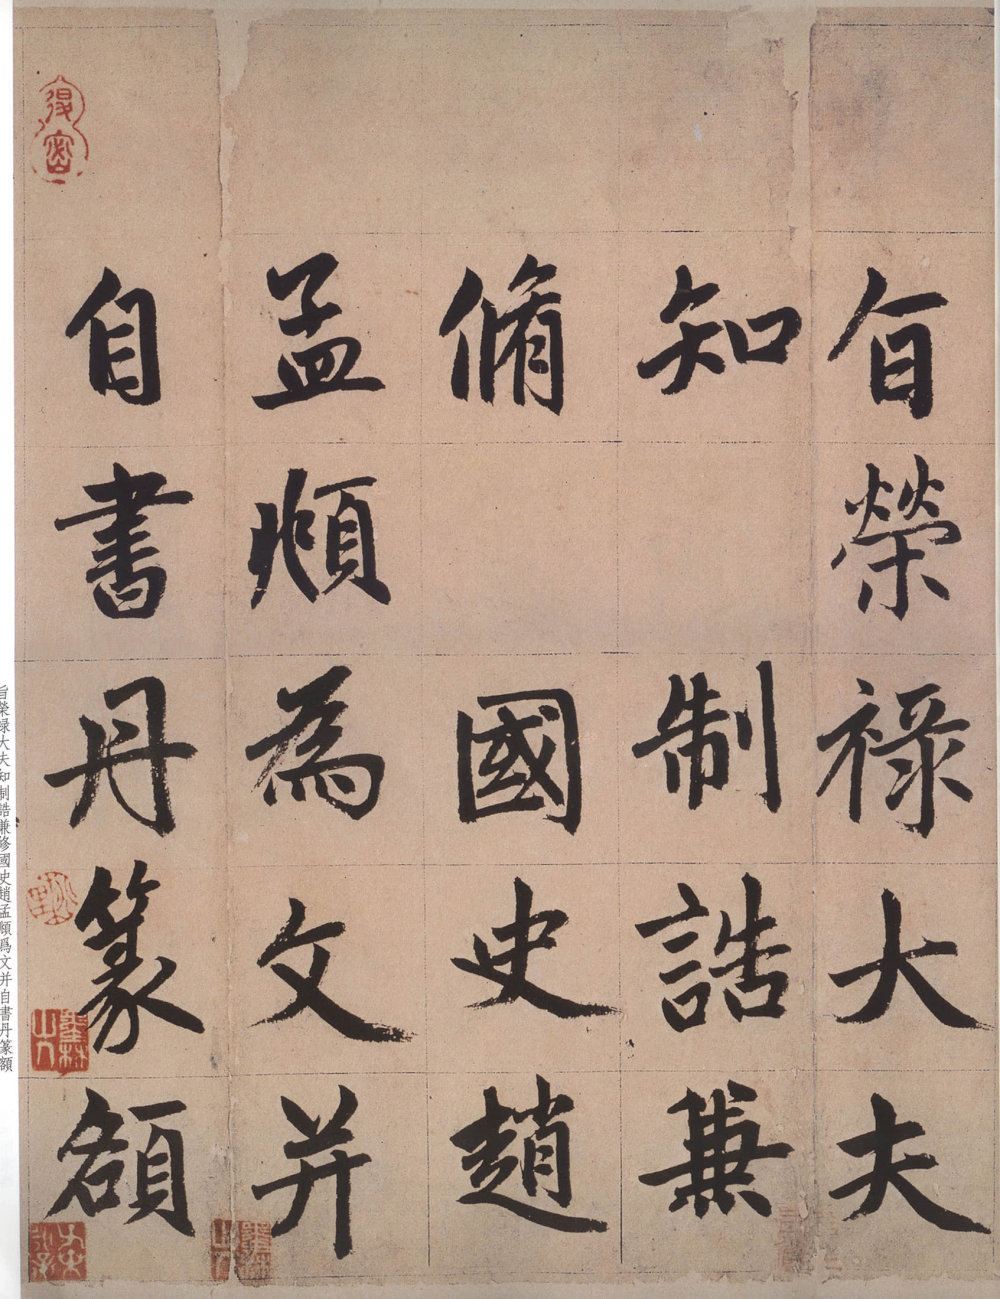 旨榮祿大夫
知制誥兼
脩國史趙
孟頫為文并
自書丹篆額
旨榮祿大夫知制誥兼修國史趙孟頫爲文并自書丹篆額